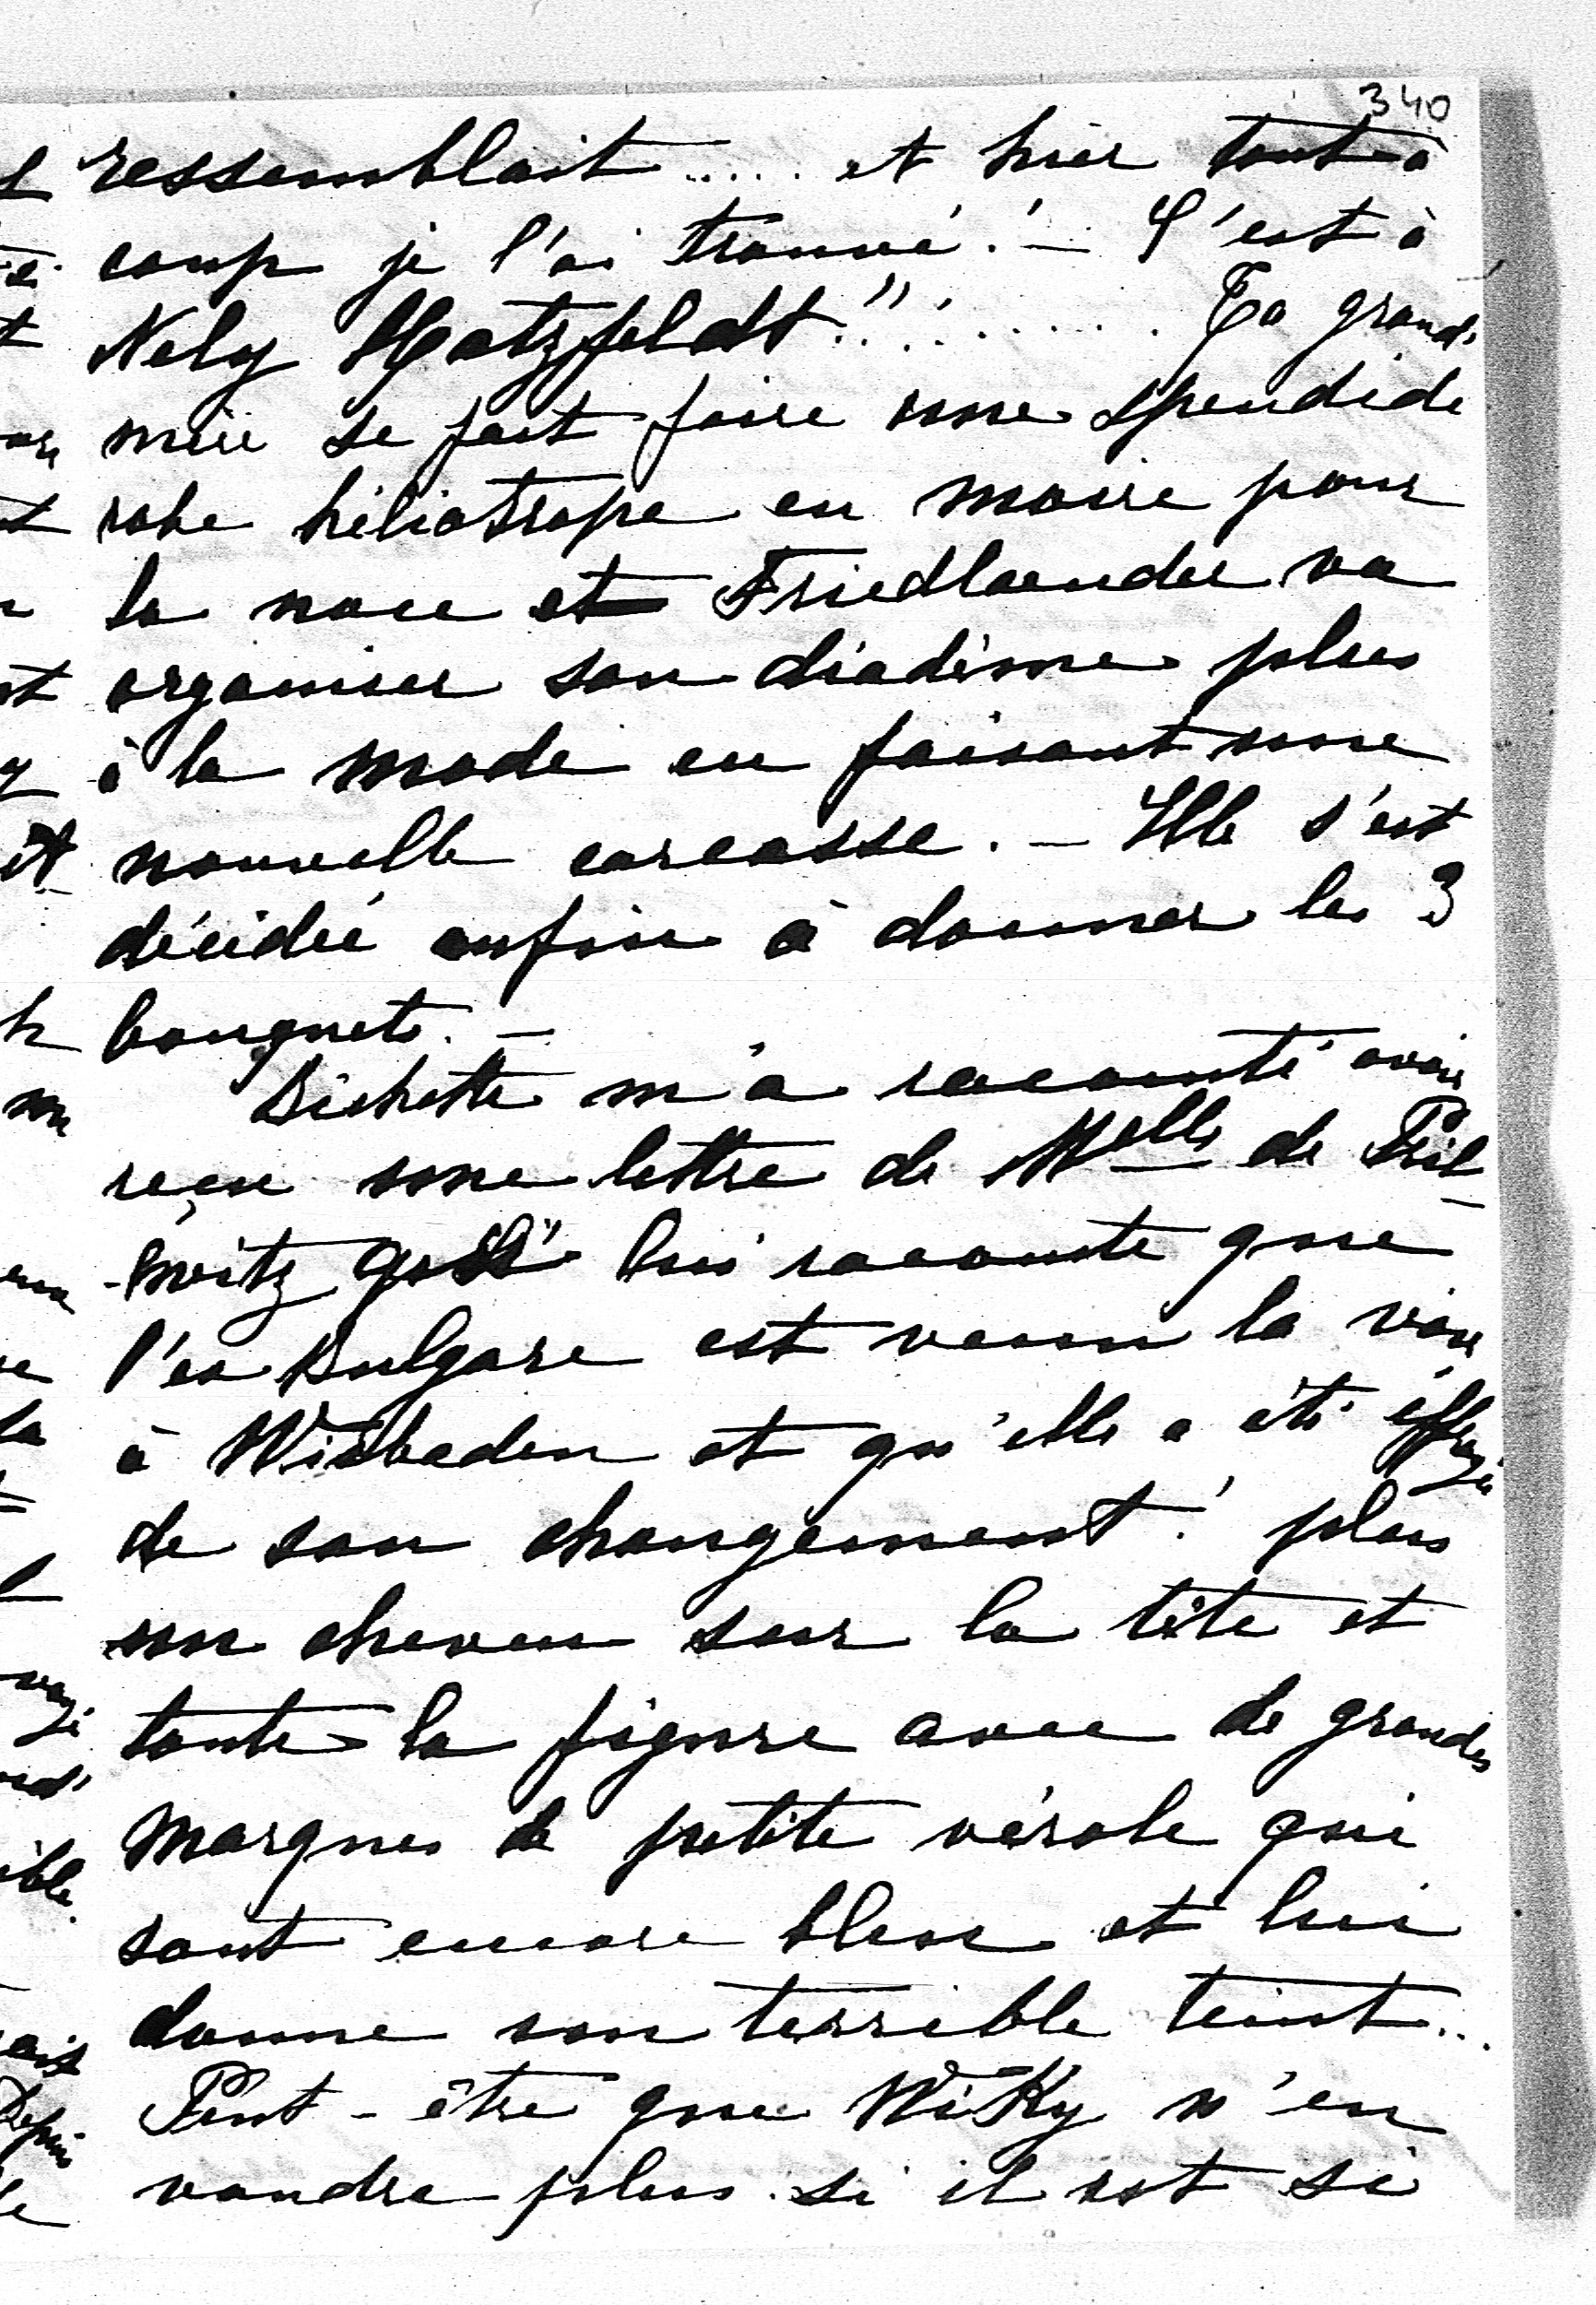 340
ressemblait ..... et hier tout à
coup je l'ai trouvé! — C'est à
Nely Hatzfeldt!!" ....... Ta grand'
mère se fait faire une spendide
robe héliotrope en moire pour
la noce et Friedlaender va
organiser son diadème plus
à la mode en faisant une
nouvelle carcasse. — Elle s'est
décidée enfin à donner les 3
bouquets. —
Bichette m'a raconté avoir
reçu une lettre de Melle de Pril-
-lwitz qui lui raconte que
l'ex Bulgare est venu la voir
à Wiesbaden et qu'elle a été effrayée
de son changement! plus
un cheveu sur la tête et
toute la figure avec de grandes
marques de petite vérole qui
sont encore bleus et lui
donne son terrible teint...
Peut-être que Wiky n'en
voudra plus si il est si